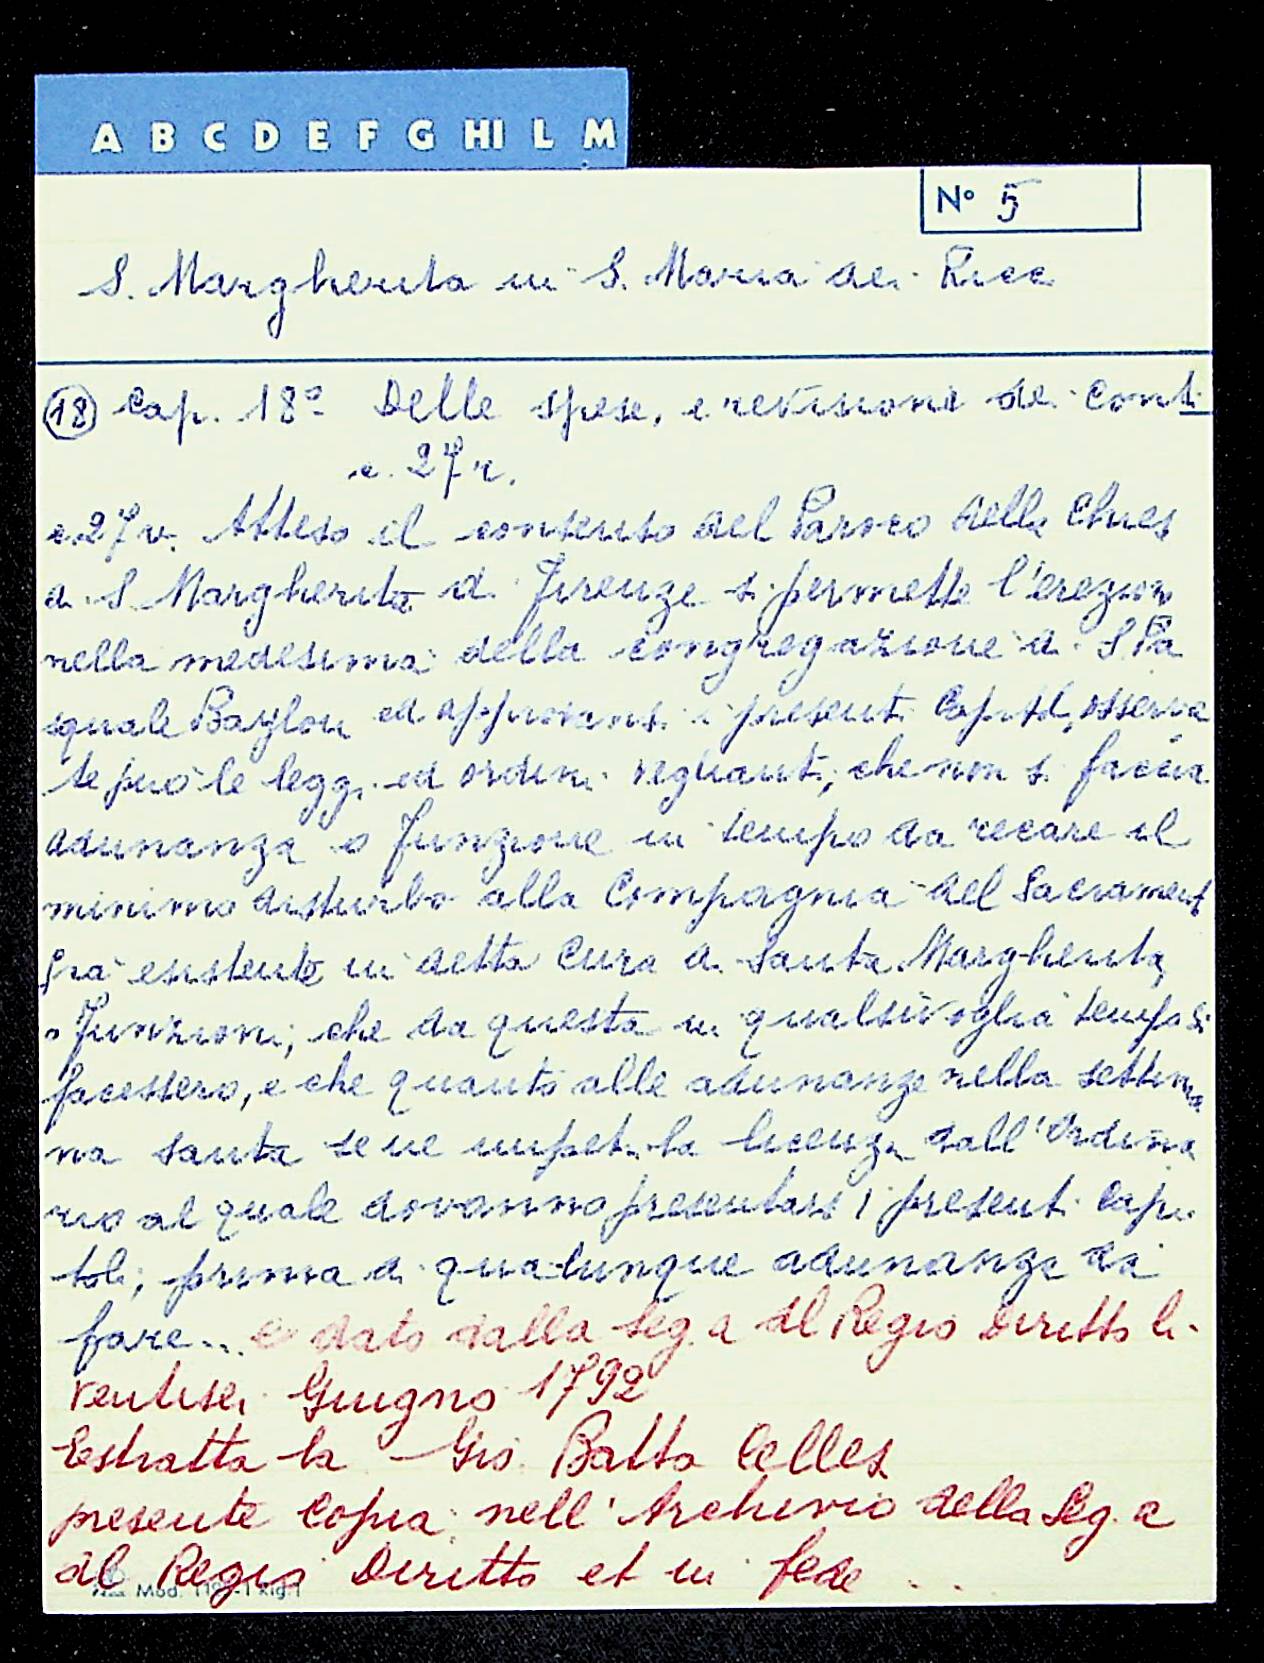 A B C D E F G HI L M
N° 5
S. Margherita in S. Maria dei Ricc
18 Cap. 18° Delle spese, e revisione dei Conti
c. 27 r.
c. 27 v. Atteso il consenso del Paroco della Chies
di S. Margherita di Firenze si permette l'erezion
nella medesima della congregazione di S. Pa
squale Baylon ed approvansi i presenti Capitoli, osserva
te però le leggi ed ordini veglianti, che non si faccia
adunanza o funzione in tempo da recare il
minimo disturbo alla Compagnia del Sacrament
già esistente in detta Cura di Santa Margherita,
o Funzioni, che da questa in qualsivoglia tempo si
facessero, e che quanto alle adunanze nella settima
na santa se ne impetri la licenza dall'Ordina
rio al quale dovranno presentarsi i presenti Capi
toli, prima di qualunque adunanza da
fare... e dato dalla Seg.a del Regio Diritto li
ventisei Giugno 1792
Estratta la Gio. Batta Celles
presente Copia nell'Archivio della Seg.a
del Regio Diritto et in fede ...
Mod.